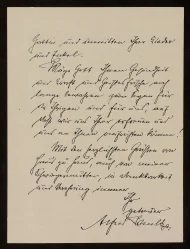 Gatten und inmitten Ihrer Kinder
und Enkel.
Möge Gott Ihnen Gesundheit
und Kraft und Geistesfrische noch
lange bewahren zum Segen für
die Ihrigen und für uns, auf
daß wir uns Ihrer erfreuen und
uns an Ihnen aufrichten können!
Mit den herzlichsten Grüßen von
Haus zu Haus, auch von meiner
Schwiegermutter, in Dankbarkeit
und Verehrung immer
Ihr
getreuer
Alfred